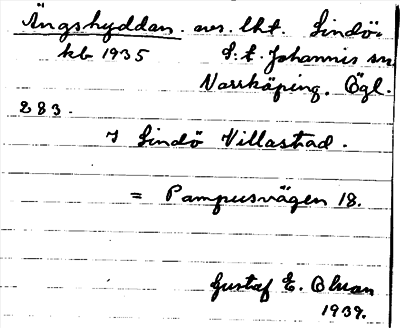 Ängshyddan. avs. lht. Lindö,
kb 1935 S:t Johannis sn
Norrköping. Ögl.
283.
I Lindö Villastad.
= Pampusvägen 18.
Gustaf E. Olson
1939.